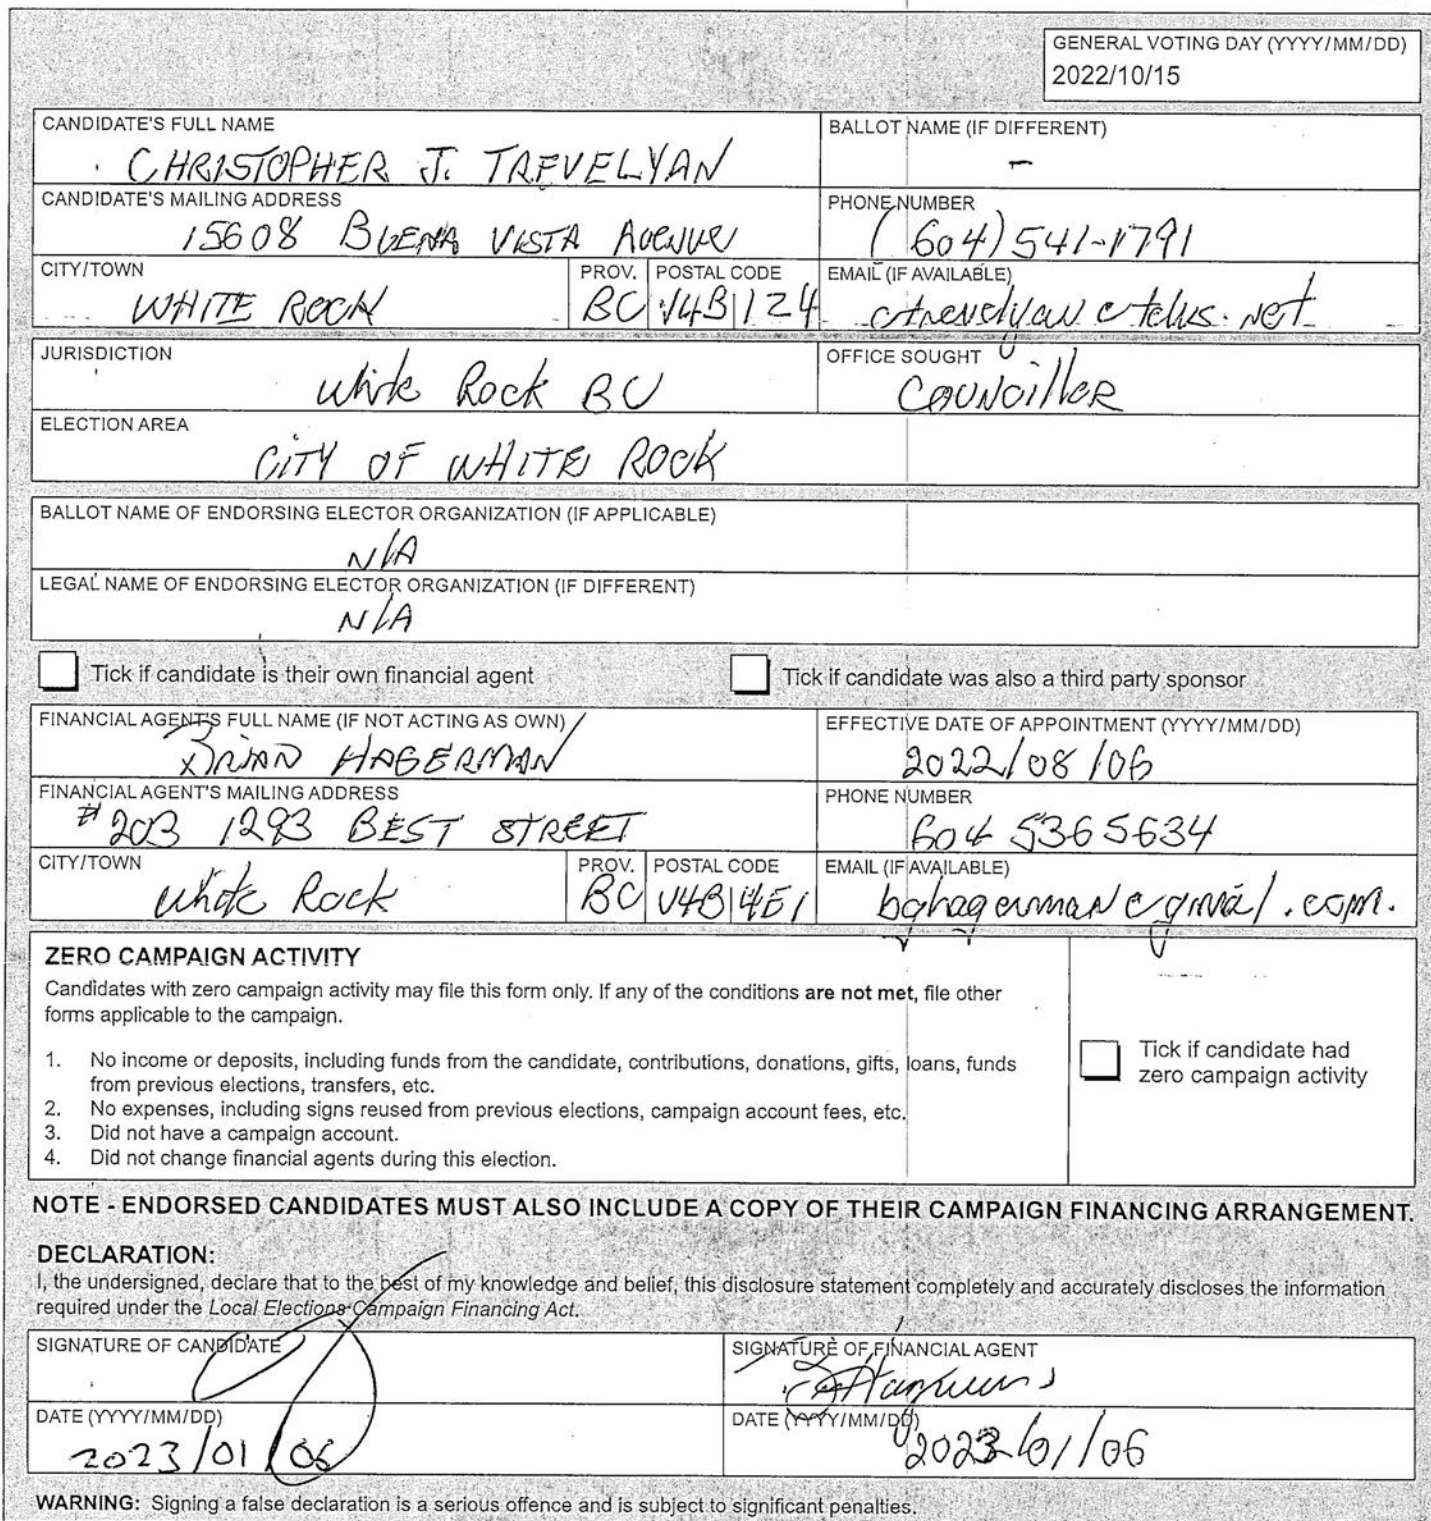 GENERAL VOTING DAY (YYYY/MM/DD)
2022/10/15
CANDIDATE'S FULL NAME
BALLOT NAME (IF DIFFERENT)
CHRISTOPHER J. TREVELYAN
-
CANDIDATE'S MAILING ADDRESS
PHONE NUMBER
15608 BUENA VISTA AVENUE
(604) 541-1791
CITY/TOWN
PROV.
POSTAL CODE
EMAIL (IF AVAILABLE)
WHITE ROCK
BC
V4B 1Z4
ctrevelyan@telus.net
JURISDICTION
OFFICE SOUGHT
White Rock BC
COUNCILLOR
ELECTION AREA
CITY OF WHITE ROCK
BALLOT NAME OF ENDORSING ELECTOR ORGANIZATION (IF APPLICABLE)
N/A
LEGAL NAME OF ENDORSING ELECTOR ORGANIZATION (IF DIFFERENT)
N/A
Tick if candidate is their own financial agent
Tick if candidate was also a third party sponsor
FINANCIAL AGENT'S FULL NAME (IF NOT ACTING AS OWN)
EFFECTIVE DATE OF APPOINTMENT (YYYY/MM/DD)
BRIAN HAGERMAN
2022/08/06
FINANCIAL AGENT'S MAILING ADDRESS
PHONE NUMBER
#203 1293 BEST STREET
604 5365634
CITY/TOWN
PROV.
POSTAL CODE
EMAIL (IF AVAILABLE)
White Rock
BC
V4B 4E1
bghagerman@gmail.com.
ZERO CAMPAIGN ACTIVITY
Candidates with zero campaign activity may file this form only. If any of the conditions are not met, file other
forms applicable to the campaign.
1. No income or deposits, including funds from the candidate, contributions, donations, gifts, loans, funds
from previous elections, transfers, etc.
2. No expenses, including signs reused from previous elections, campaign account fees, etc.
3. Did not have a campaign account.
4. Did not change financial agents during this election.
Tick if candidate had
zero campaign activity
NOTE - ENDORSED CANDIDATES MUST ALSO INCLUDE A COPY OF THEIR CAMPAIGN FINANCING ARRANGEMENT.
DECLARATION:
I, the undersigned, declare that to the best of my knowledge and belief, this disclosure statement completely and accurately discloses the information
required under the Local Elections Campaign Financing Act.
SIGNATURE OF CANDIDATE
SIGNATURE OF FINANCIAL AGENT
DATE (YYYY/MM/DD)
DATE (YYYY/MM/DD)
2023/01/06
2023/01/06
WARNING: Signing a false declaration is a serious offence and is subject to significant penalties.